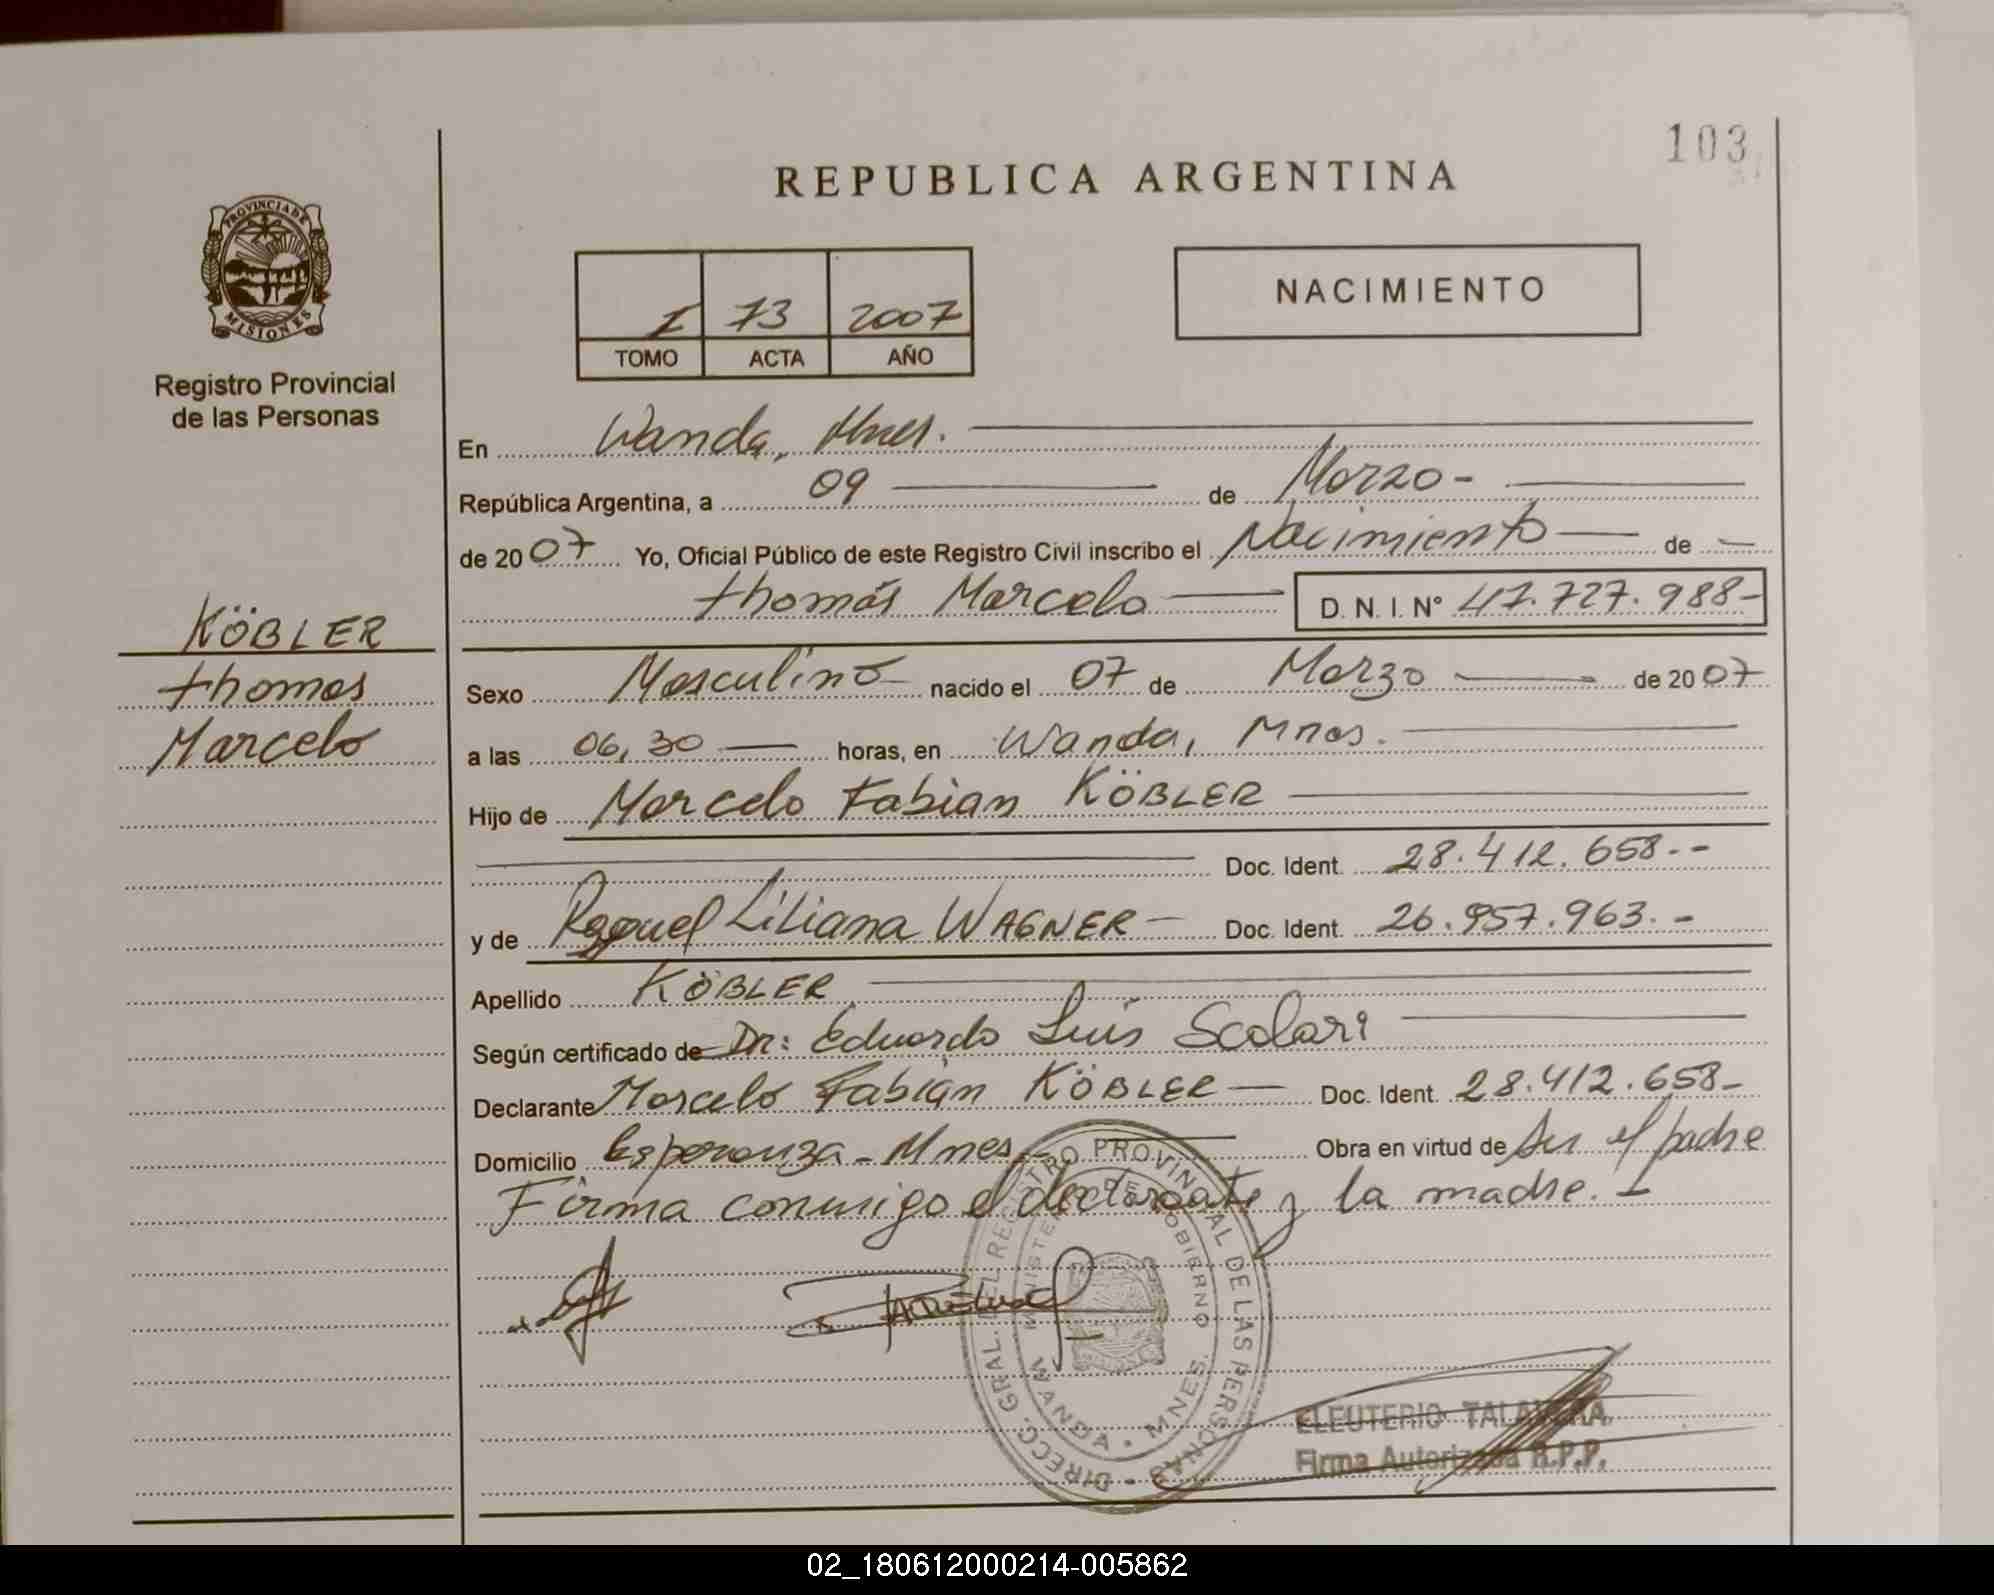 103
REPUBLICA ARGENTINA
PROVINCIA DE
MISIONES
Registro Provincial
de las Personas
I 73 2007
TOMO ACTA AÑO
NACIMIENTO
En Wanda, Mnes.
República Argentina, a 09 de Marzo -
de 2007 Yo, Oficial Público de este Registro Civil inscribo el Nacimiento de
thomás Marcelo D. N. I. N° 47.727.988-
KÖBLER
thomas
Marcelo
Sexo Masculino nacido el 07 de Marzo de 2007
a las 06,30 horas, en Wanda, Mnes.
Hijo de Marcelo Fabian KÖBLER
Doc. Ident. 28.412.658.-
y de Raquel Liliana WAGNER - Doc. Ident. 26.957.963.-
Apellido KÖBLER
Según certificado de Dr: Eduardo Luis Scolari
Declarante Marcelo Fabián KÖBLER - Doc. Ident. 28.412.658-
Domicilio Esperanza - Mnes. Obra en virtud de ser el padre
Firma conmigo el declarante y la madre. -
DIRECC. GRAL. DEL REGISTRO PROVINCIAL DE LAS PERSONAS
MINISTERIO DE GOBIERNO
WANDA - MNES.
ELEUTERIO TALAVERA
Firma Autorizada R.P.P.
02_180612000214-005862